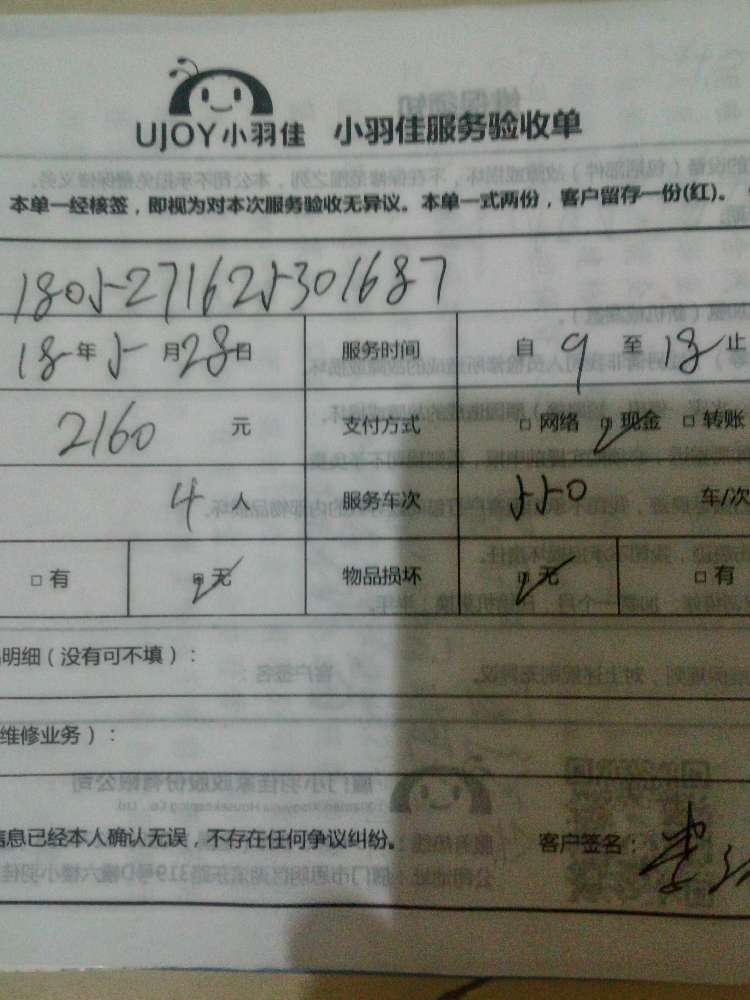 UJOY小羽佳 小羽佳服务验收单
本单一经核签，即视为对本次服务验收无异议。本单一式两份，客户留存一份(红)。
1805271625301687
18年5月28日 服务时间 自9至18止
2160元 支付方式 □网络 ☑现金 □转账
4人 服务车次 550 车/次
□有 ☑无 物品损坏 ☑无 □有
明细（没有可不填）：
维修业务）：
信息已经本人确认无误，不存在任何争议纠纷。 客户签名：李